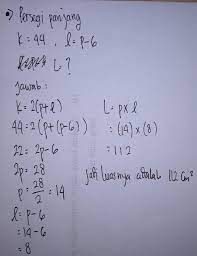 Persegi panjang
k = 44 , l = p-6
L ?
Jawab :
k = 2(p+l)
44 = 2(p+(p-6)
22 = 2p-6
2p = 28
p = 28/2 = 14
l = p-6
= 14-6
= 8
L = p x l
= (14) x (8)
= 112
jadi luasnya adalah 112 cm²